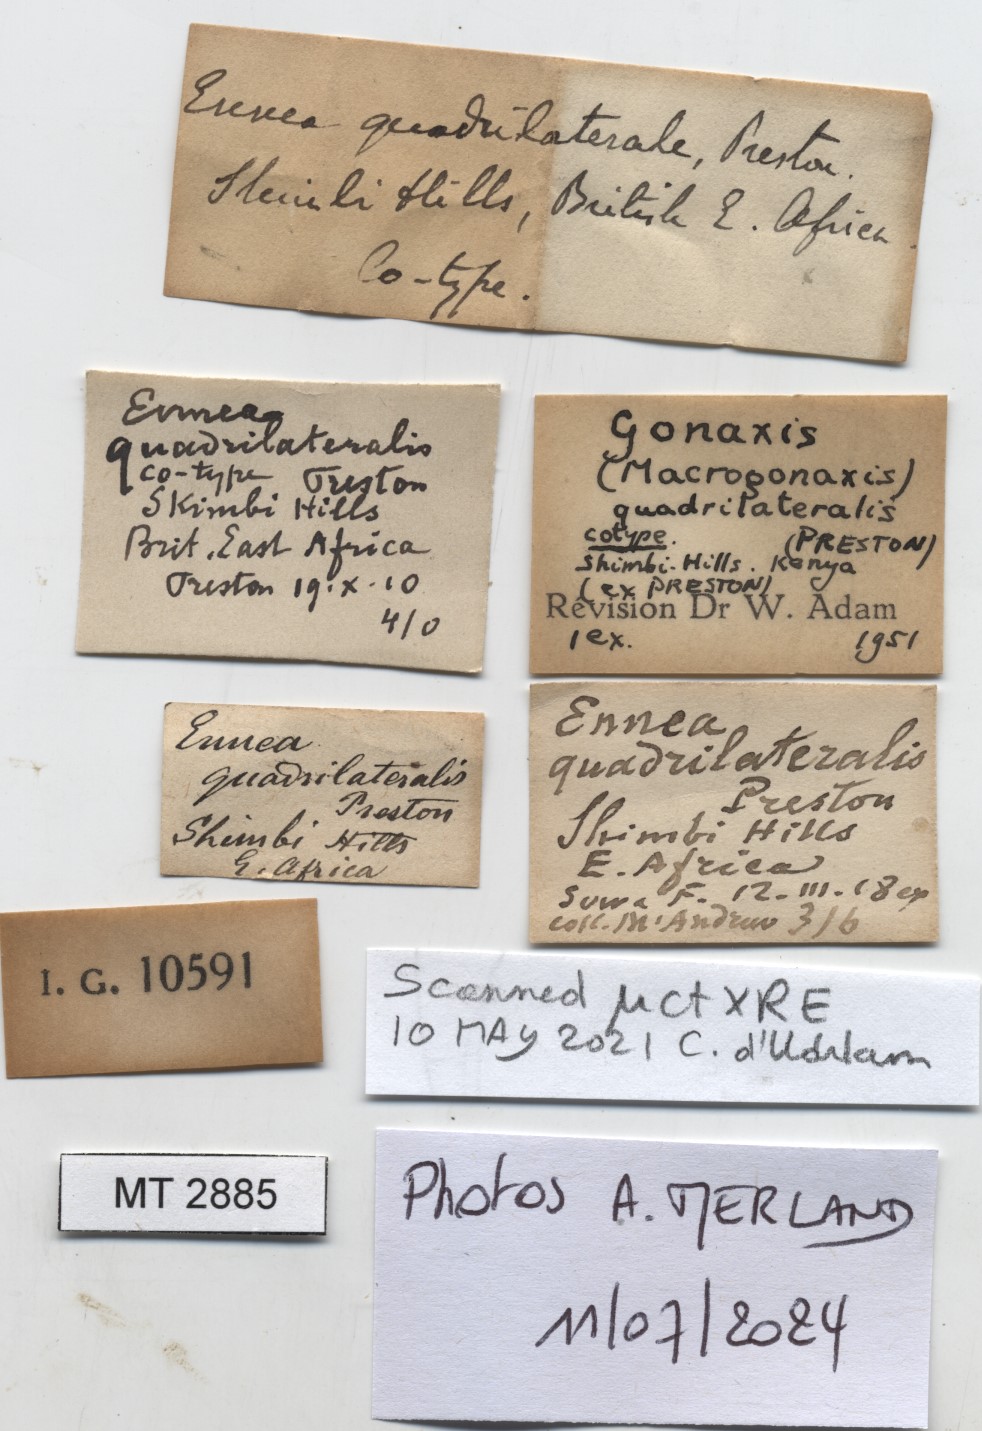 Ennea quadrilaterale, Preston.
Shimbi Hills, British E. Africa.
Co-type.
Ennea
quadrilateralis
co-type Preston
Skimbi Hills
Brit. East Africa
Preston 19.x.10
4/0
Gonaxis
(Macrogonaxis)
quadrilateralis
cotype. (PRESTON)
Shimbi-Hills. Kenya
(ex PRESTON)
Révision Dr W. Adam
1 ex. 1951
Ennea
quadrilateralis
Preston
Shimbi Hills
E. Africa
Ennea
quadrilateralis
Preston
Shimbi Hills
E. Africa
F. 12-III-18 ex
coll. M'Andrew 3/6
I. G. 10591
Scanned µct XRE
10 MAY 2021 C.
MT 2885
Photos A. MERLAND
11/07/2024